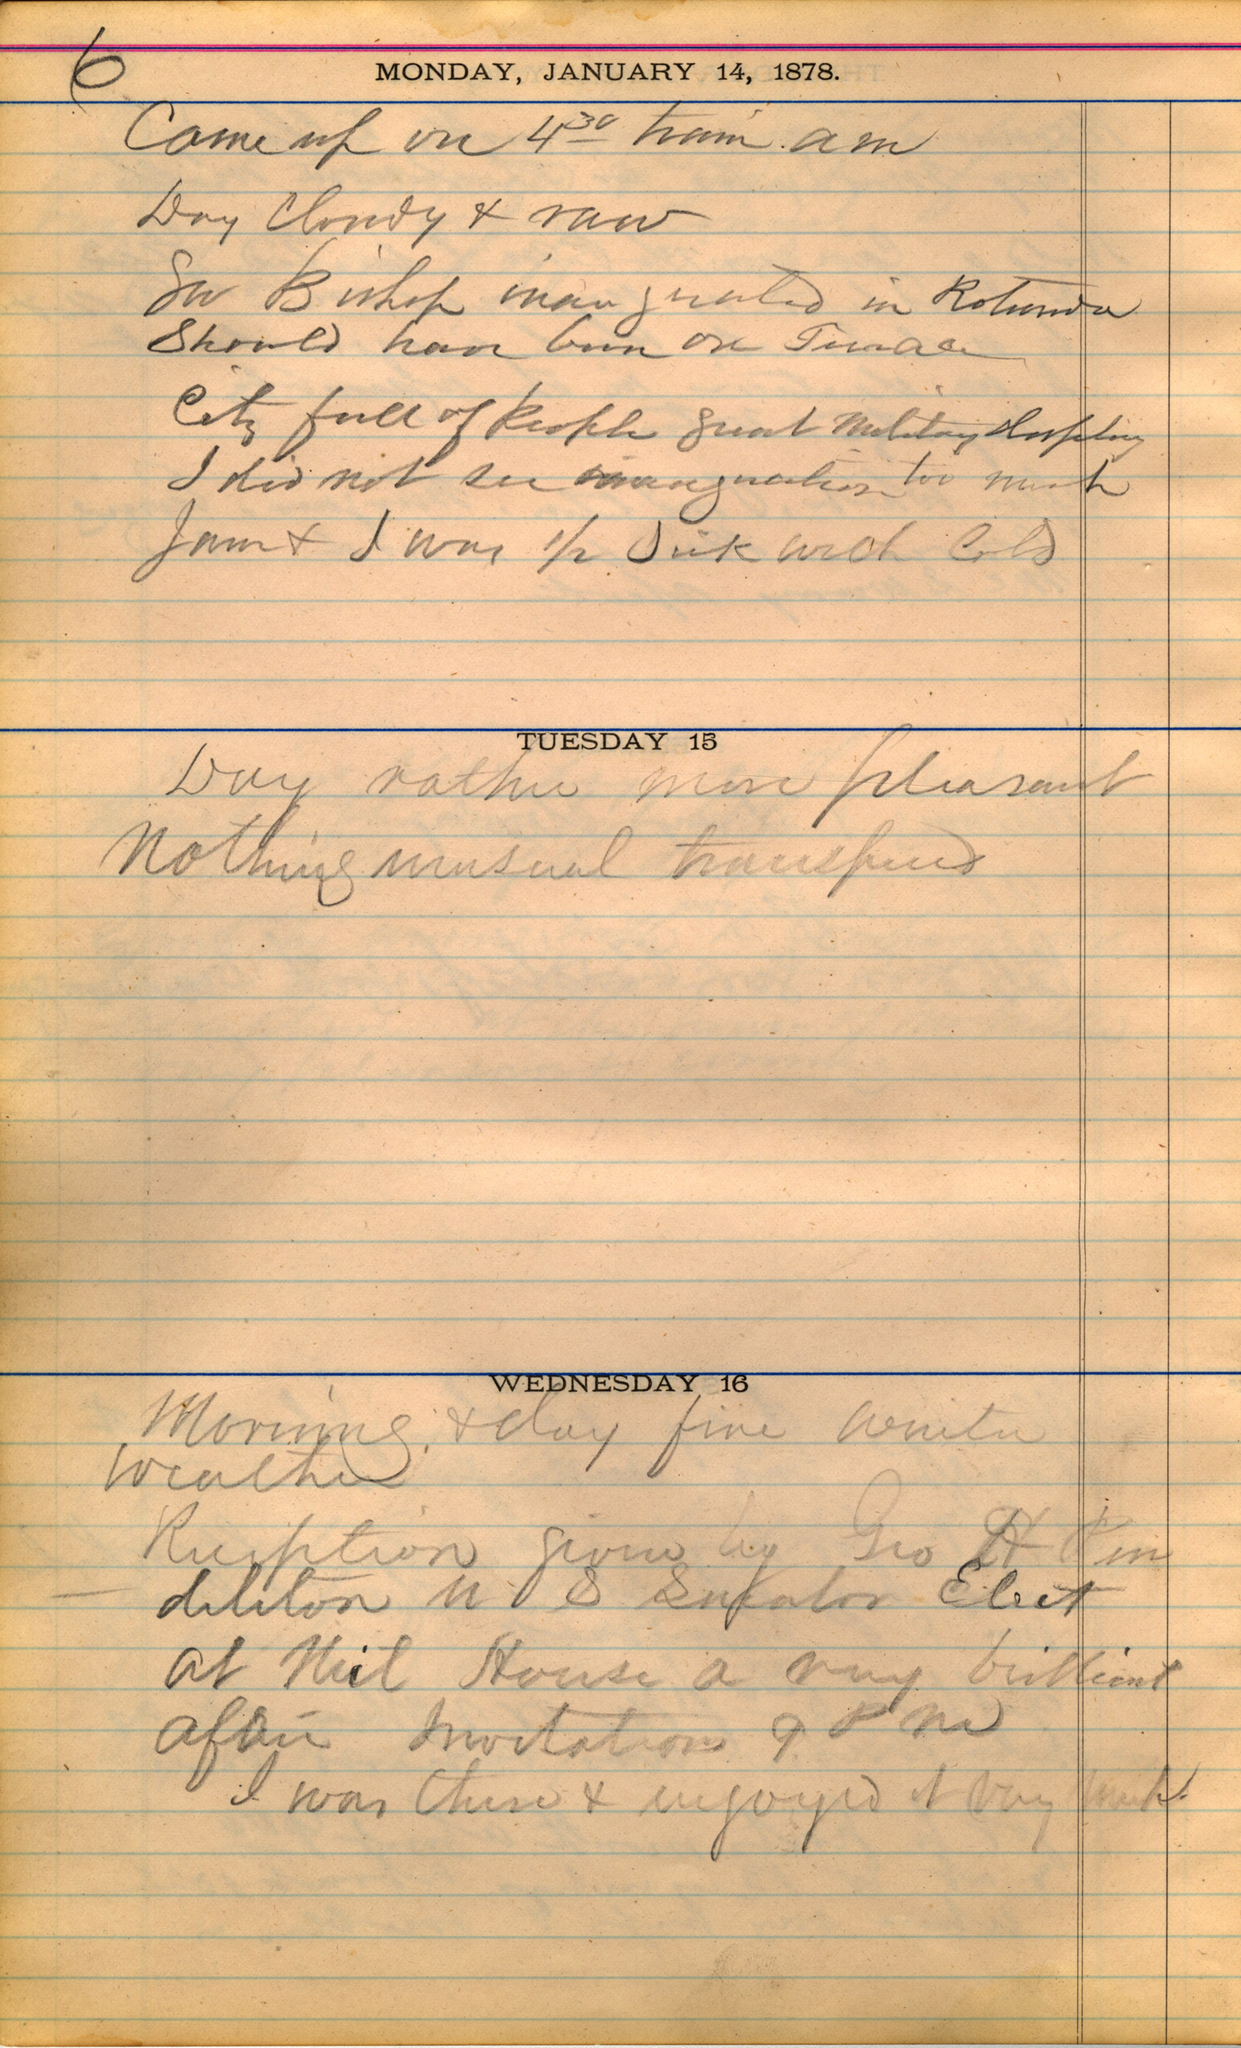 6
MONDAY, JANUARY 14, 1878.
Came up on 4 30 train am
Day Cloudy & raw
Gov Bishop inaugurated in Rotunda
Should have been on Terrace
City full of People great Military display
I did not see inauguration too much
Jam & I was 1/2 Sick with Cold
TUESDAY 15
Day rather more pleasant
Nothing unusual transpired
WEDNESDAY 16
Morning & day fine winter
weather
Reception given by Geo H Pen
dleton U S Senator Elect
at Neil House a very brilliant
affair Invitations 9 P M
I was there & enjoyed it very much